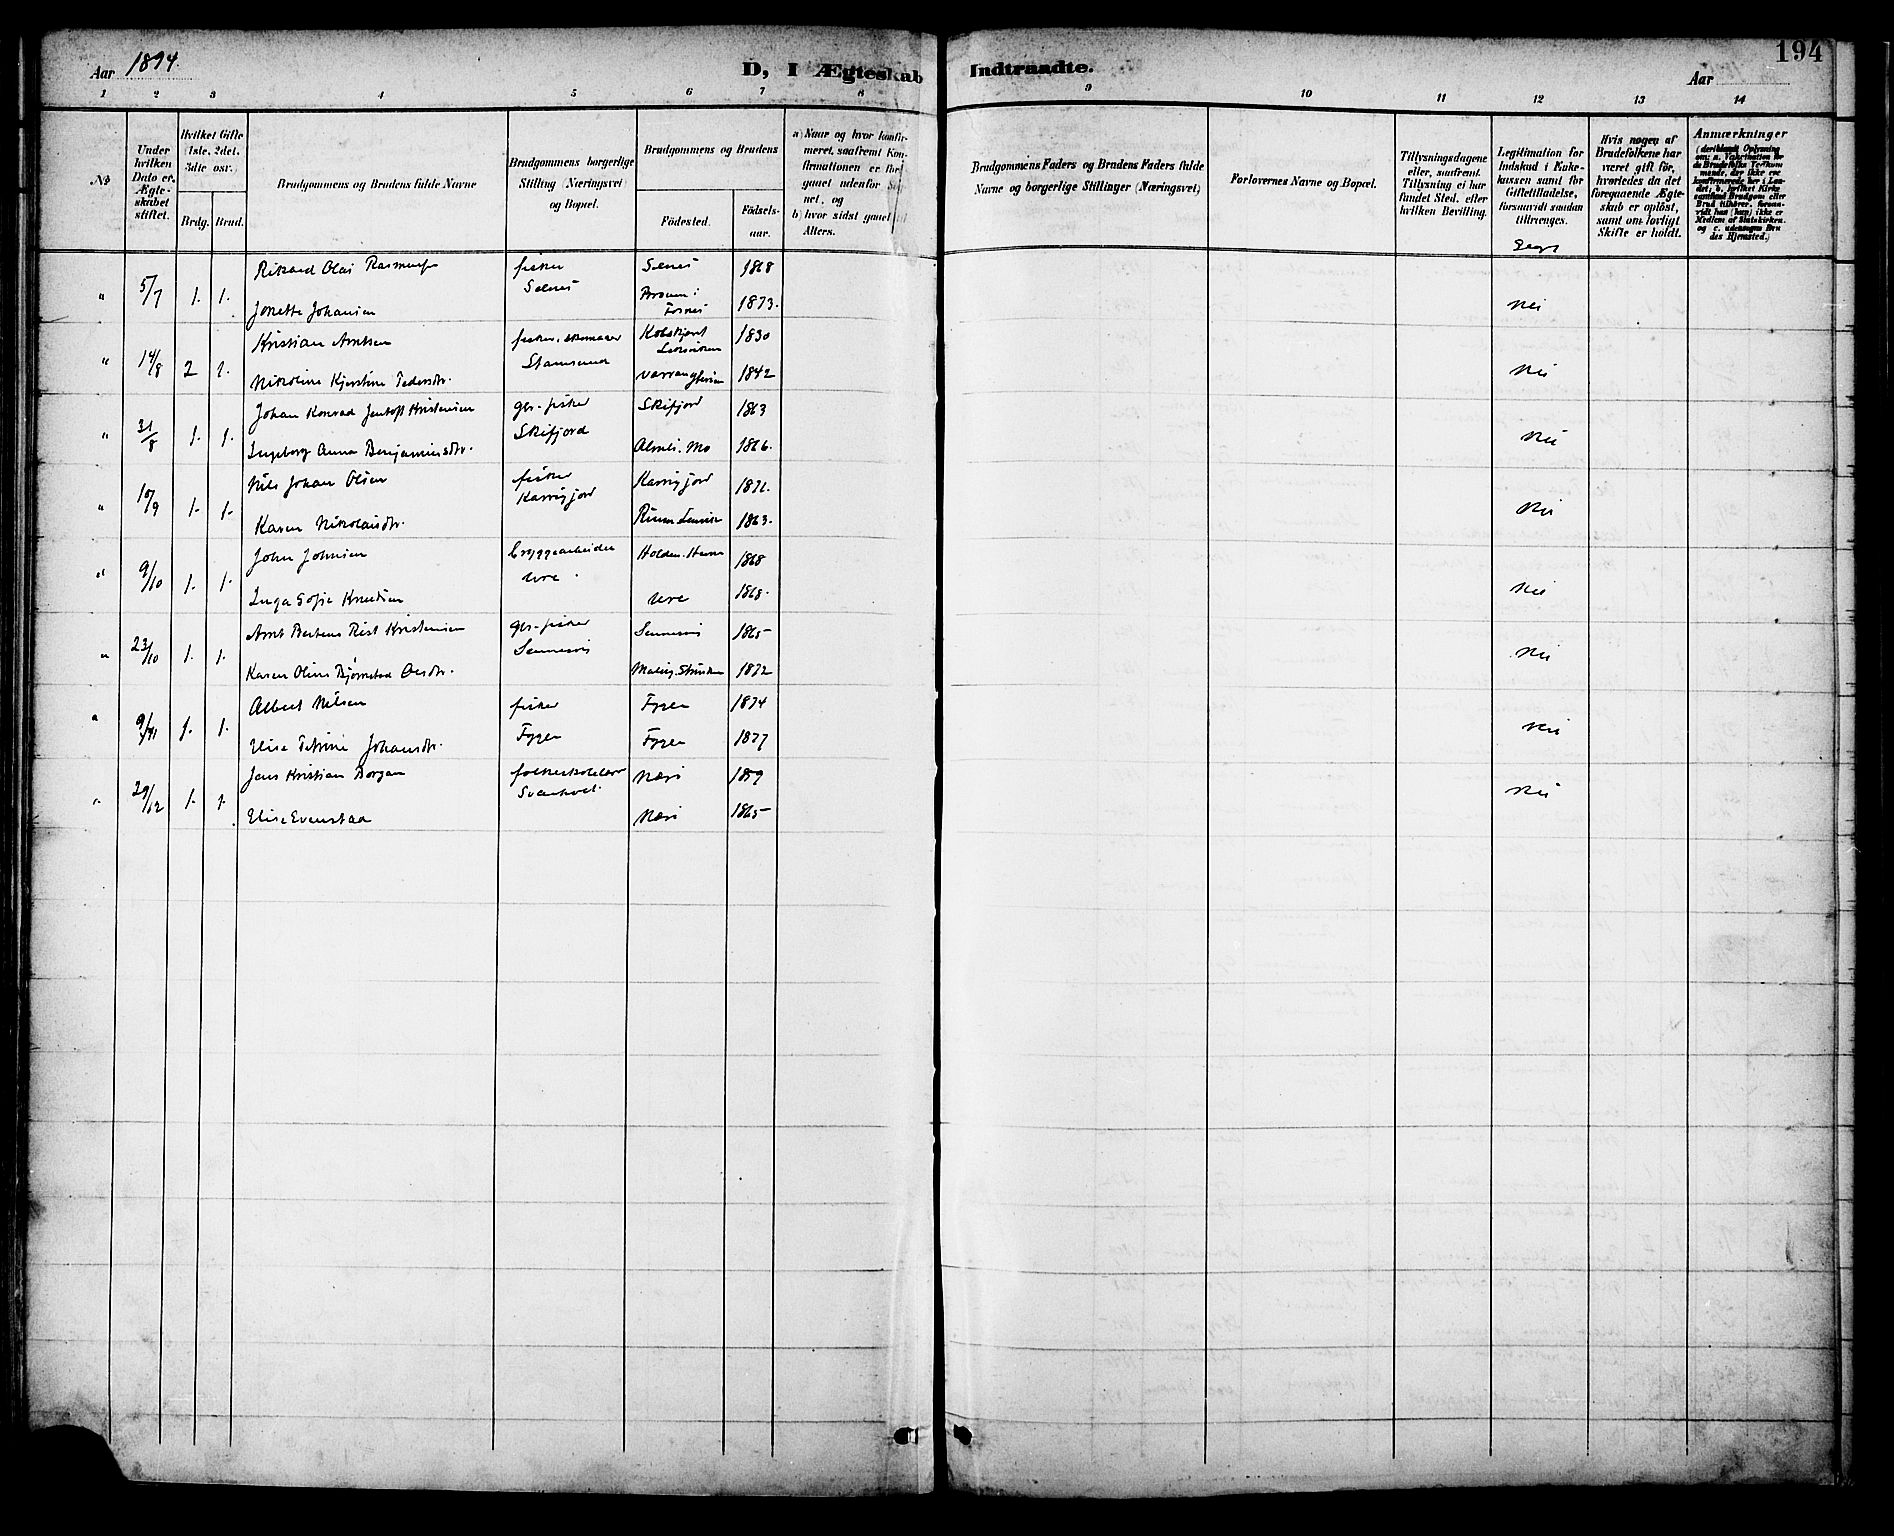 194
Aar 1894. D, I Ægteskab Indtraadte. Aar
1 2 3 4 5 6 7 8 9 10 11 12 13 14
No
Under hvilken Dato er Ægteskabet stiftet.
Hvilket Gifte (1ste, 2det, 3die osv.)
Brdg. Brud.
Brudgommens og Brudens fulde Navne
Brudgommens borgerlige Stilling (Næringsvei) og Bopæl.
Brudgommens og Brudens
Födested. Födselsaar.
a) Naar og hvor konfirmeret, saafremt Konfirmationen er foregaaet udenfor
b) hvor sidst gaaet til Alters.
Brudgommens Faders og Brudens Faders fulde Navne og borgerlige Stillinger (Næringsvei)
Forlovernes Navne og Bopæl.
Tillysningsdagene eller, saafremt Tillysning ei har fundet Sted, efter hvilken Bevilling.
Legitimation for Indskud i Enkekassen samt for Giftetilladelse, forsaavidt saadan tiltrænges.
Hvis nogen af Brudefolkene har været gift för, hvorledes da det foregaaende Ægteskab er oplöst, samt om lovligt Skifte er holdt.
Anmærkninger (deriblandt Oplysning om: a. Vakcination for de Brudefolks Vedkommende, der ikke ere konfirmerede her i Landet, b. hvilket Kirkesamfund Brudgom eller Brud tilhörer, forsaavidt han (hun) ikke er Medlem af Statskirken, og c. udensogns Brudes Hjemsted.)
" 5/7 1. 1. Rikard Olai fisker 1868
Jonette Johansen 1873. Nei
" 14/8 2 1. Kristian Arntsen fisker, skomager 1830
Nikoline Kjerstine Pedersdtr. Stamsund 1842 Nei
" 31/8 1. 1. Johan Konrad Jentoft Kristensen gbr. fisker Skifjord 1863
Ingeborg Anna Benjaminsdtr. Skifjord Mo 1866. Nei
" 10/9 1. 1. Nils Johan Olsen fisker
Karen Nikolaisdtr. 1863. Nei
" 9/10 1. 1. John Johnsen bryggearbeider 1868
Inga Sofie Knudsen Ure. Ure 1868. Nei
" 23/10 1. 1. Arnt Kristensen gbr. fisker Sennesvi 1865
Karen Oline Bjørnstad Olsdtr. Sennesvi 1872 Nei
" 9/11 1. 1. Albert Nilsen fisker Fygle 1874
Elise Petrine Johansdtr. Fygle Fygle 1877 Nei
" 29/12 1. 1. Jens Kristian Borgan folkeskolelærer 1859
Elise Evenstad 1865 Nei